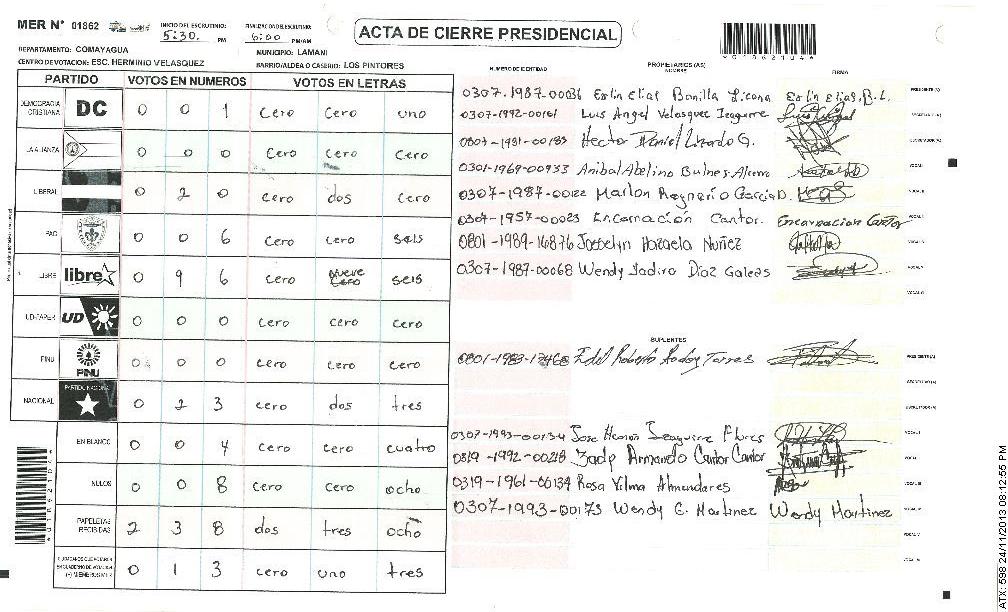 MER N° 01862
INICIO DEL ESCRUTINIO: 5:30. PM
FINALIZACION DEL ESCRUTINIO: 6:00 PM/AM
ACTA DE CIERRE PRESIDENCIAL
*01862104*
DEPARTAMENTO: COMAYAGUA
MUNICIPIO: LAMANI
CENTRO DE VOTACION: ESC. HERMINIO VELASQUEZ
BARRIO/ALDEA O CASERIO: LOS PINTORES
PARTIDO VOTOS EN NUMEROS VOTOS EN LETRAS
DEMOCRACIA CRISTIANA DC 0 0 1 cero cero uno
LA ALIANZA 0 0 0 cero cero cero
LIBERAL 0 2 0 cero dos cero
PAC 0 0 6 cero cero seis
LIBRE libre 0 9 6 cero nueve cero seis
UD-FAPER UD 0 0 0 cero cero cero
PINU PINU 0 0 0 cero cero cero
NACIONAL PARTIDO NACIONAL 0 2 3 cero dos tres
EN BLANCO 0 0 4 cero cero cuatro
NULOS 0 0 8 cero cero ocho
PAPELETAS RECIBIDAS 2 3 8 dos tres ocho
CIUDADANOS QUE VOTARON EN CUADERNO DE VOTACION (+) MIEMBROS MER 0 1 3 cero uno tres
NUMERO DE IDENTIDAD PROPIETARIOS (AS) NOMBRE FIRMA
0307-1987-00036 Eslin Elias Bonilla Licona Eslin Elias.B.L. PRESIDENTE(A)
0307-1992-00161 Luis Angel Velasquez Izaguirre SECRETARIO(A)
Hector Daniel Lizardo G. ESCRUTADOR(A)
Anibal Abelino Bulnes VOCAL I
0307-1987-00122 Marlon VOCAL II
Encarnación Cantor. Encarnacion Cantor VOCAL III
0801-1989-16876 Nuñez VOCAL IV
0307-1987-00068 Wendy Yadira Diaz Galeas VOCAL V
VOCAL VI
SUPLENTES
PRESIDENTE(A)
SECRETARIO(A)
ESCRUTADOR(A)
0307-1993-00134 Jose Izaguirre Flores VOCAL I
0319-1992-00218 Armando Cantor Cantor VOCAL II
0319-1961-00134 Rosa Vilma Almendares VOCAL III
0307-1993-00173 Wendy C. Martinez Wendy Martinez VOCAL IV
VOCAL V
VOCAL VI
ATX: 598 24/11/2013 08:12:55 PM